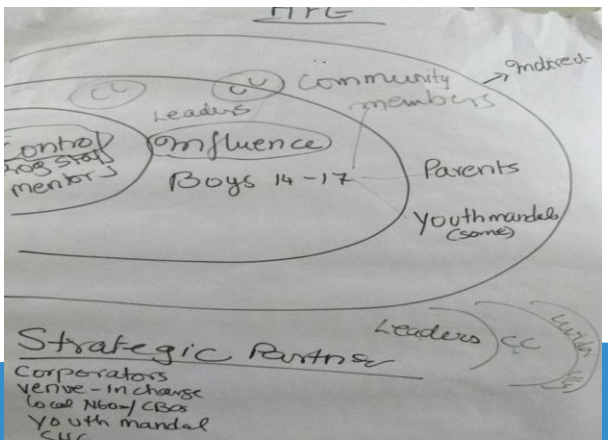 CC
CC
Community
members
Indirect
Leaders
Control
Prog staff
mentors
Influence
Boys 14-17
Parents
Youth mandals
(some)
Leaders
CC
Strategic Partner
Corporators
Venue-Incharge
local NGO/CBOs
Youth mandal
SHG